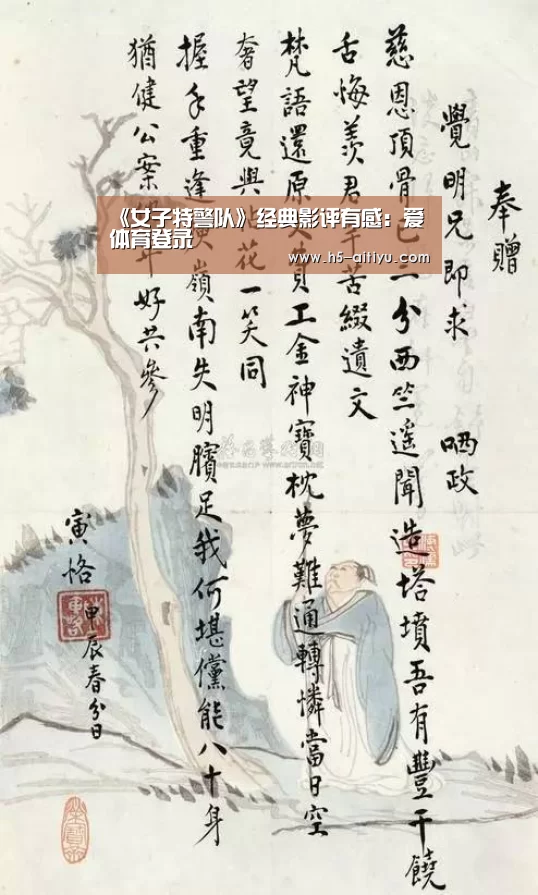 奉贈
覺明兄即求 哂政
慈恩頂骨已三分西竺遙聞造塔墳吾有豐干饒
舌悔羨君辛苦綴遺文
梵語還原久費工金神寶枕夢難通轉憐當日空
奢望竟與拈花一笑同
握手重逢庾嶺南失明臏足我何堪儻能八十身
猶健公案他年好共參
寅恪
甲辰春分日
《女子特警队》经典影评有感：爱
体育登录
www.h5-aitiyu.com